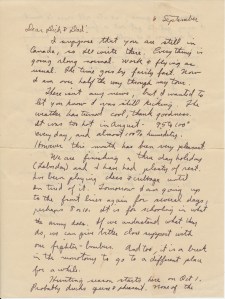 8 September
Dear Dick & Dad
I suppose that you are still in
Canada, so I'll write there. Everything is
going along normal. Work & flying as
usual. The time goes by fairly fast. Now
I am over half the way through my tour.
There isn't any news, but I wanted to
let you know I was still kicking. The
weather has turned cool, thank goodness.
It was too hot in August. 90 to 100°
every day, and almost 100% humidity.
However this month has been very pleasant.
We are finishing a three day holiday
(Labor day) and I have had plenty of rest.
been playing chess & cribbage until
I'm tired of it. Tomorrow I am going up
to the front lines again for several days,
It is for schooling in what
the army does. If we understand what they
do, we can give better close support with
our fighter-bombers. And too, it is a break
in the monotony to go to a different place
for a while.
Hunting season starts here on Oct 1.
Probably ducks, geese & pheasant. None of the